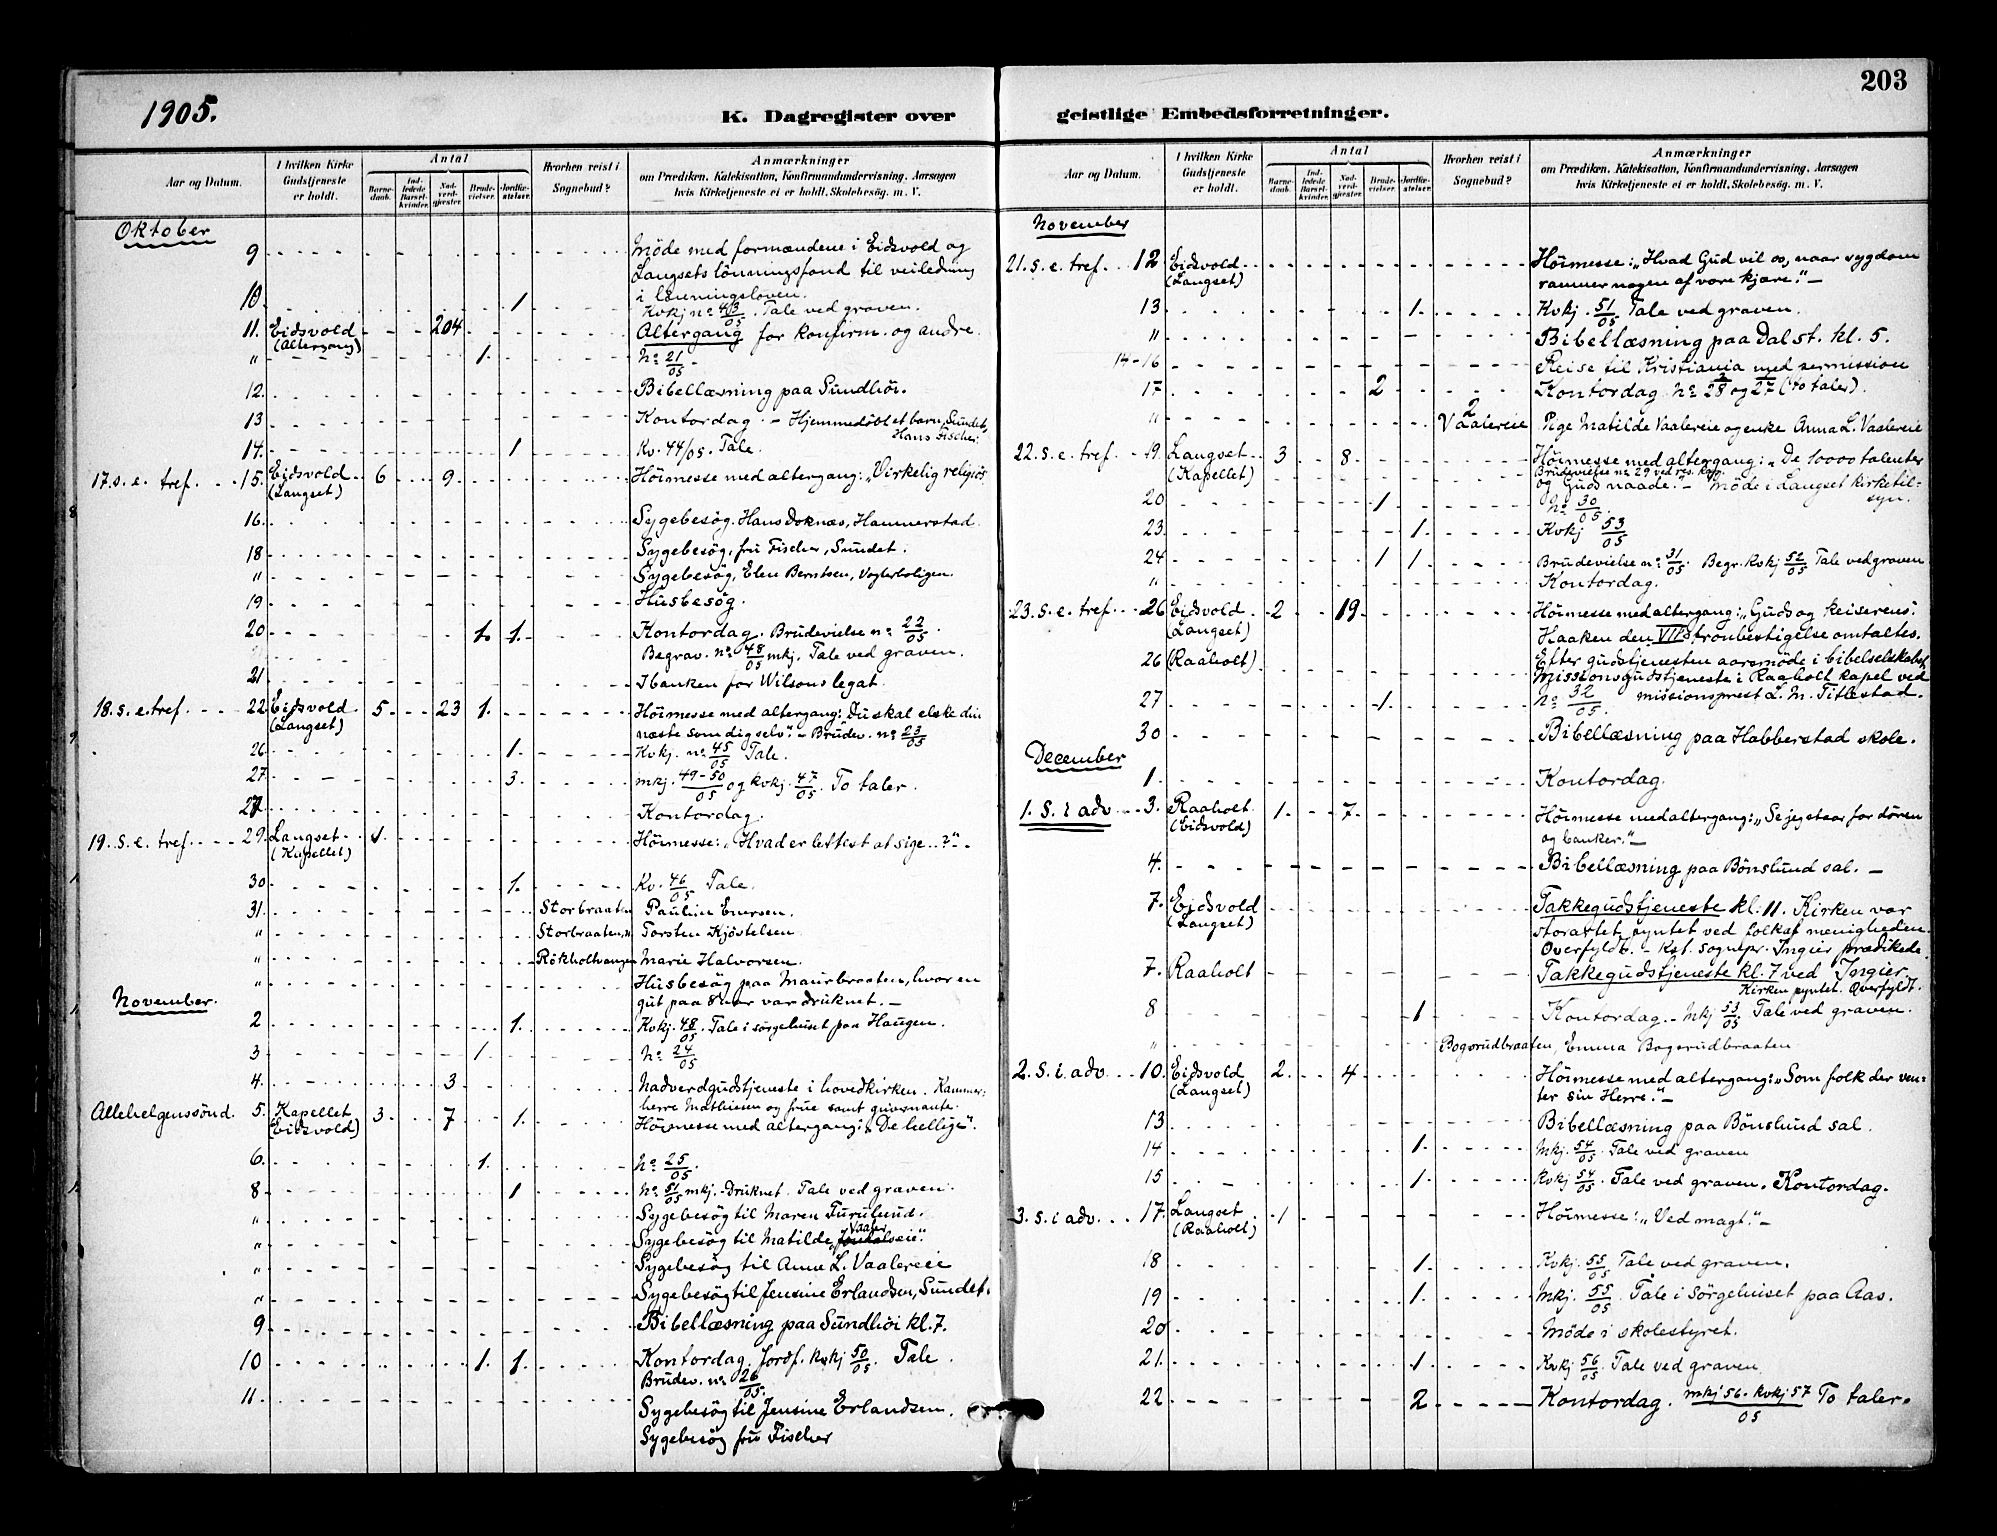 1905.
K. Dagregister over
Aar og Datum.
I hvilken Kirke
Gudstjeneste
er holdt.
Antal
Barne-
daab.
Ind-
ledede
Barsel-
kvinder.
Nad-
verd-
gjester.
Brude-
vielser.
Jordfæ-
stelser.
Hvorhen reist i
Sognebud?
Anmærkninger
om Prædiken, Katekisation, Konfirmandundervisning, Aarsagen
hvis Kirketjeneste ei er holdt, Skolebesøg. m. V.
Oktober
9 Möde med formændene i Eidsvold og
Langsets lönningsfond til veiledning
i lönningsloven.
10. 1 Kvkj nº 43/05. Tale ved graven.
11. Eidsvold 204 Altergang for konfirm. og andre.
(Altergang)
" 1. Nº 21/05
12. Bibellæsning paa Sundhöi.
13 Kontordag. - Hjemmedöbt et barn, Sundet,
Hans Fischer.
14. 1 Kv. 44/05. Tale.
17.s.e. tref. 15. Eidsvold 6 9 Höimesse med altergang: "Virkelig religiös.
(Langset)
16. Sygebesög. Hans Doknæs, Hammerstad.
18 Sygebesög, fru Fischer, Sundet.
" Sygebesög, Elen Berntsen, Vogterboligen.
19 Husbesög.
20 1. 1. Kontordag. Brudevielse nº 22/05.
Begrav. nº 48/05 mkj. Tale ved graven.
21 I banken for Wilsons legat.
18.s.e.tref. 22 Eidsvold 5 23 1. Höimesse med altergang: Du skal elske din
(Langset) næste som dig selv". - Brudev. nº 23/05
26 1. Kvkj. nº 45/05 Tale.
27 3. mkj. 49-50/05 og kvkj. 47/05. To taler.
27. Kontordag.
19.s.e. tref. 29. Langset 1. Höimesse: "Hvad er lettest at sige..?" -
(Kapellet)
30 1. Kv. 46/05 Tale.
31. Storbraaten Pauline Enersen.
" Storbraaten, n Torsten Kjöstelsen
" Rökholtvangen Marie Halvorsen.
" Husbesög paa Maurbraaten, hvor en
gut paa 8 aar var druknet. -
November.
2 1. Kvkj. 48/05. Tale i sörgehuset paa Haugen.
3 1. Nº 24/05
4. 3 Nadverdgudstjeneste i hovedkirken. Kammer-
herre Mathiesen og frue samt guvernante.
Allehelgenssönd. 5. Kapellet 3 7 1. Höimesse med altergang: "De hellige".
(Eidsvold)
6. 1. Nº 25/05.
8 1 Nº 51/05 mkj. - Druknet. Tale ved graven.
" Sygebesög til Maren Furulund.
" Sygebesög til Matilde Vaalereie".
" Sygebesög til Anne L. Vaalereie
" Sygebesög til Jensine Erlandsen, Sundet.
9 Bibellæsning paa Sundhöi kl. 7.
10 1. 1. Kontordag. Jordf. kvkj 50/05. Tale.
Brudev. nº 26/05.
11. Sygebesög til Jensine Erlandsen.
Sygebesög fru Fischer
203
geistlige Embedsforretninger.
Aar og Datum.
I hvilken Kirke
Gudstjeneste
er holdt.
Antal
Barne-
daab.
Ind-
ledede
Barsel-
kvinder.
Nad-
verd-
gjester.
Brude-
vielser.
Jordfæ-
stelser.
Hvorhen reist i
Sognebud?
Anmærkninger
om Prædiken, Katekisation, Konfirmandundervisning, Aarsagen
hvis Kirketjeneste ei er holdt, Skolebesøg. m. V.
November
21. s. e. tref. 12 Eidsvold Höimesse: "Hvad Gud vil os, naar sygdom
(Langset) rammer nogen af vore kjære." -
13 1. Kvkj. 51/05. Tale ved graven.
" Bibellæsning paa Dal st. kl. 5.
14-16 Reise til Kristiania med permission
17 2 Kontordag. Nº 28 og 27 (to taler).
" 2 Vaalereie Pige Matilde Vaalereie og enke Anna L. Vaalereie
22. s. e. tref. 19. Langset 3 8 Höimesse med altergang: "De 10000 talenter
(Kapellet) Brudevielse nº 29 ved res. kap.
og Guds naade." - Möde i Langset kirketil-
syn.
20 1 Nº 30/05.
23. 1. Kvkj 53/05
24 1 1 Brudevielse nº 31/05. Begr. kvkj 52/05 Tale ved graven
" Kontordag.
23. s. e. tref. 26 Eidsvold 2 19 Höimesse med altergang: "Guds og keiserens".
(Langset) Haakon den VII's tronbestigelse omtaltes.
Efter gudstjenesten aarsmöde i bibelselskabet
26 (Raaholt) Missionsgudstjeneste i Raaholt kapel ved
missionsprest L. M. Titlestad.
27 1. Nº 32/05.
30 Bibellæsning paa Habberstad skole.
December
1. Kontordag.
1. S. i adv 3. Raaholt 1. 7 Höimesse med altergang: "Se jeg staar for dören
(Eidsvold) og banker." -
4. Bibellæsning paa Bönslund sal. -
7. Eidsvold Takkegudstjeneste kl. 11. Kirken var
(Langset) storartet pyntet ved folk af menigheden.
Overfyldt. - Kst. sognepr. Ingier prædikede.
7. Raaholt Takkegudstjeneste kl. 7 ved Ingier.
Kirken pyntet. Overfyldt.
8 1 Kontordag. - Mkj 53/05. Tale ved graven.
" Bogsrudbraaten, Emma Bogsrudbraaten
2. S. i. adv 10. Eidsvold 2. 4 Höimesse med altergang: "Som folk der ven-
(Langset) ter sin Herre." -
13 Bibellæsning paa Bönslund sal.
14 1. Mkj. 54/05. Tale ved graven
15 1. Kvkj 54/05. Tale ved graven. Kontordag.
3. S. i adv. 17. Langset 1 Höimesse: "Ved magt." -
(Raaholt)
18 1. Kvkj. 55/05 Tale ved graven.
19 1. Mkj. 55/05. Tale i sörgehuset paa Aas.
20 Möde i skolestyret.
21. 1 Kvkj 56/05. Tale ved graven
22 2 Kontordag. mkj 56. kvkj 57/05 To taler.